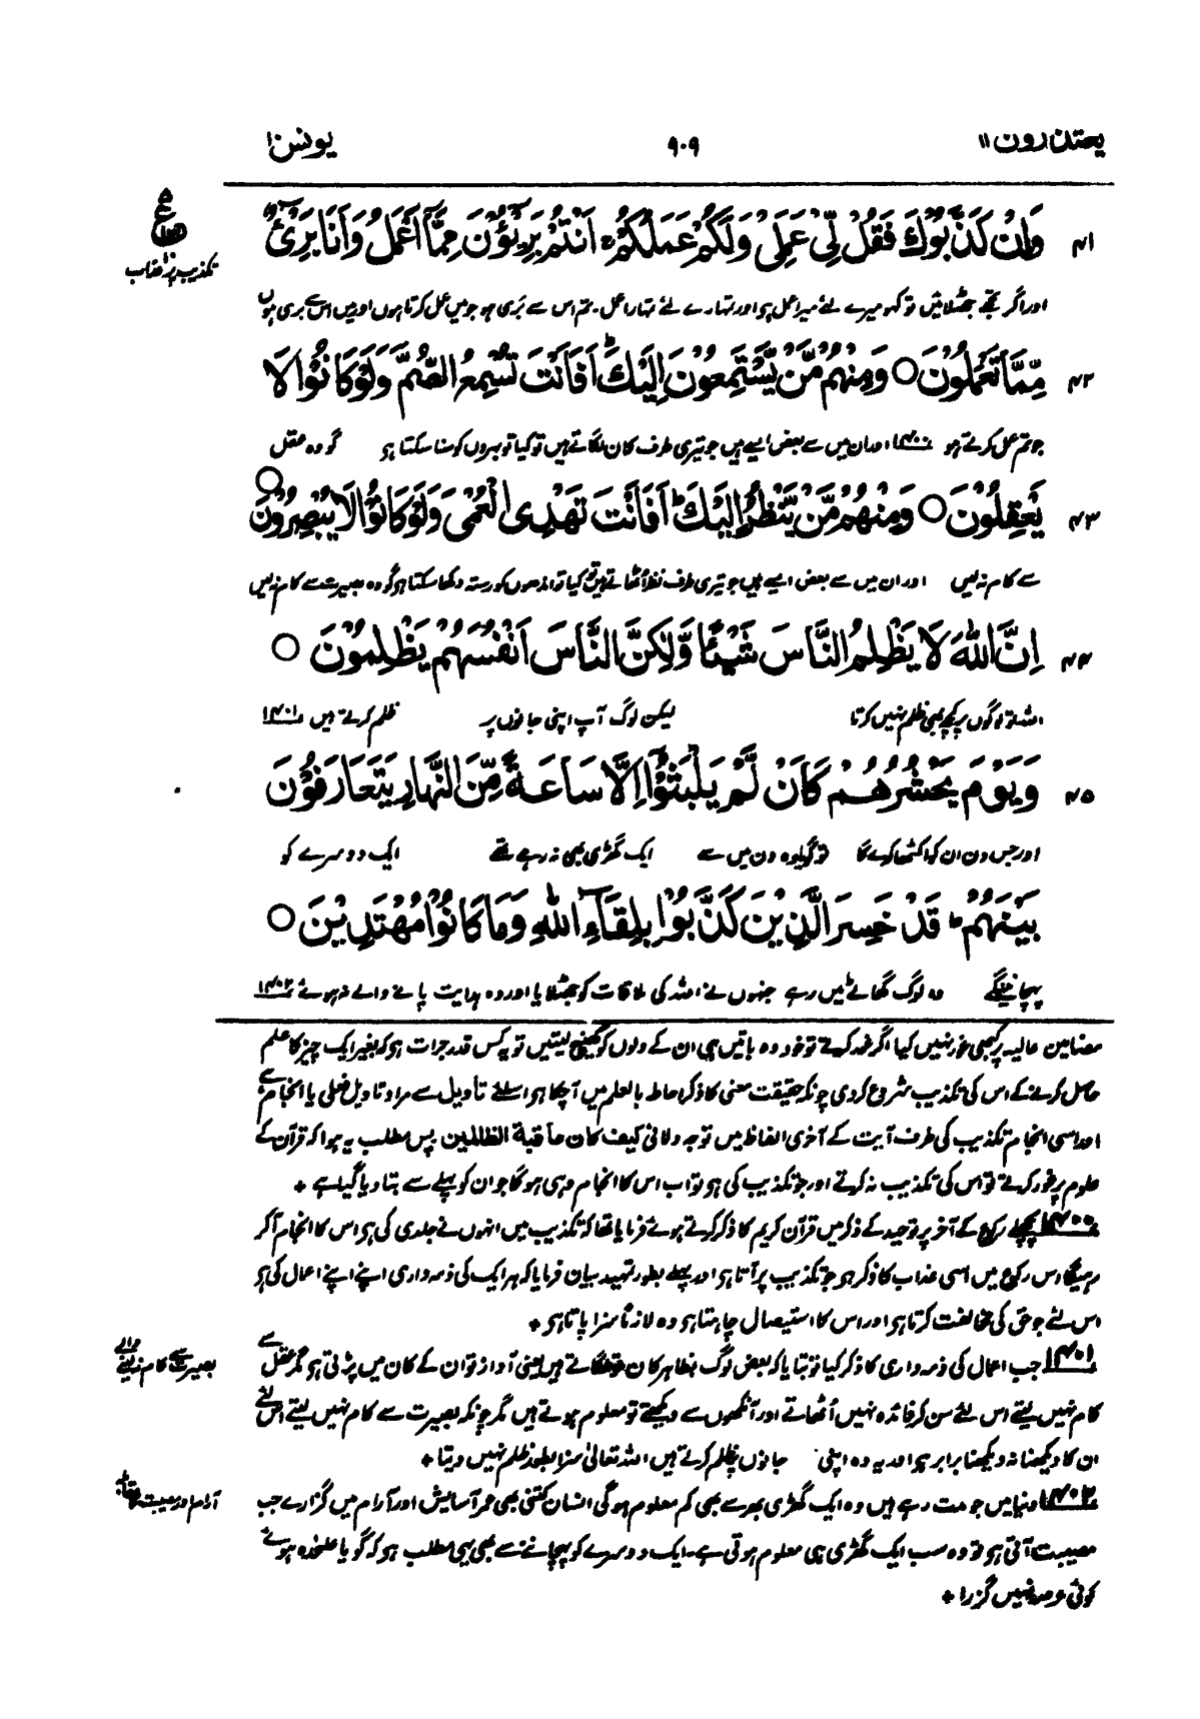 یعتذرون ۱۱
۹۰۹
یونس ۱۰
۴۱ وَاِنْ كَذَّبُوْكَ فَقُلْ لِّیْ عَمَلِیْ وَلَكُمْ عَمَلُكُمْ ۚ اَنْتُمْ بَرِیْٓـُٔوْنَ مِمَّاۤ اَعْمَلُ وَاَنَا بَرِیْٓءٌ
اور اگر تجھے جھٹلائیں تو کہو میرے لئے میرا عمل ہو اور تمہارے لئے تمہارا عمل۔ تم اس سے بری ہو جو میں عمل کرتا ہوں اور میں اس سے بری ہوں
۴۲ مِّمَّا تَعْمَلُوْنَ ○ وَمِنْهُمْ مَّنْ یَّسْتَمِعُوْنَ اِلَیْكَ ؕ اَفَاَنْتَ تُسْمِعُ الصُّمَّ وَلَوْ كَانُوْا لَا
جو تم عمل کرتے ہو ۱۴۰۰ اور ان میں سے بعض ایسے ہیں جو تیری طرف کان لگاتے ہیں تو کیا تو بہروں کو سنا سکتا ہو گو وہ عقل
۴۳ یَعْقِلُوْنَ ○ وَمِنْهُمْ مَّنْ یَّنْظُرُ اِلَیْكَ ؕ اَفَاَنْتَ تَهْدِی الْعُمْیَ وَلَوْ كَانُوْا لَا یُبْصِرُوْنَ ○
سے کام نہ لیں اور ان میں سے بعض ایسے ہیں جو تیری طرف نظر اُٹھاتے ہیں تو کیا تو اندھوں کو رستہ دکھا سکتا ہو گو وہ بصیرت سے کام نہ لیں
۴۴ اِنَّ اللّٰهَ لَا یَظْلِمُ النَّاسَ شَیْـًٔا وَّلٰكِنَّ النَّاسَ اَنْفُسَهُمْ یَظْلِمُوْنَ ○
اللہ تو لوگوں پر کچھ بھی ظلم نہیں کرتا لیکن لوگ آپ اپنی جانوں پر ظلم کرتے ہیں ۱۴۰۱
۴۵ وَیَوْمَ یَحْشُرُهُمْ كَاَنْ لَّمْ یَلْبَثُوْۤا اِلَّا سَاعَةً مِّنَ النَّهَارِ یَتَعَارَفُوْنَ
اور جس دن ان کو اکٹھا کرے گا تو گویا وہ دن میں سے ایک گھڑی بھی نہ رہے تھے ایک دوسرے کو
بَیْنَهُمْ ؕ قَدْ خَسِرَ الَّذِیْنَ كَذَّبُوْا بِلِقَآءِ اللّٰهِ وَمَا كَانُوْا مُهْتَدِیْنَ ○
پہچانیں گے وہ لوگ گھاٹے میں رہے جنہوں نے اللہ کی ملاقات کو جھٹلایا اور وہ ہدایت پانے والے نہ ہوئے ۱۴۰۲
مضامین عالیہ پر کبھی غور نہیں کیا اگر غور کرتے تو خود وہ باتیں ہی ان کے دلوں کو کھینچ لیتیں تو یہ کس قدر جرات ہو کہ بغیر ایک چیز کا علم
حاصل کرنے کے اس کی تکذیب شروع کر دی چونکہ حقیقت معنی کا ذکر احاطہ بالعلم میں آچکا ہو اسلئے تأویل سے مراد تاویل فعلی یا انجام ہے
اور اسی انجام تکذیب کی طرف آیت کے آخری الفاظ میں توجہ دلائی کیف کان عاقبة الظالمین پس مطلب یہ ہوا کہ قرآن کے
علوم پر غور کرتے تو اس کی تکذیب نہ کرتے اور جو تکذیب کی ہو تو اب اس کا انجام وہی ہوگا جو ان کو پہلے سے بتا دیا گیا ہے ٭
۱۴۰۰ پچھلے رکوع کے آخر پر توحید کے ذکر میں قرآن کریم کا ذکر کرتے ہوئے فرمایا تھا کہ تکذیب میں انہوں نے جلدی کی ہو اس کا انجام آکر
رہیگا اس رکوع میں اسی عذاب کا ذکر ہو جو تکذیب پر آتا ہو اور پہلے بطور تمہید بیان فرمایا کہ ہر ایک کی ذمہ داری اپنے اپنے اعمال کی ہو
اس لئے جو حق کی مخالفت کرتا ہو اور اس کا استیصال چاہتا ہو وہ لازماً سزا پاتا ہو ٭
۱۴۰۱ جب اعمال کی ذمہ داری کا ذکر کیا تو بتایا کہ بعض لوگ بظاہر کان تو لگاتے ہیں یعنی آواز تو ان کے کان میں پڑتی ہو مگر عقل سے
کام نہیں لیتے اس لئے سن کر فائدہ نہیں اُٹھاتے اور آنکھوں سے دیکھتے تو معلوم ہوتے ہیں مگر چونکہ بصیرت سے کام نہیں لیتے اس لئے
ان کا دیکھنا نہ دیکھنا برابر ہو اور یہ وہ اپنی جانوں پر ظلم کرتے ہیں اللہ تعالیٰ سزا بطور ظلم نہیں دیتا ٭
۱۴۰۲ دنیا میں جو مدت رہے ہیں وہ ایک گھڑی بھر سے بھی کم معلوم ہوگی انسان کتنی بھی عمر آسایش اور آرام میں گزارے جب
مصیبت آتی ہو تو وہ سب ایک گھڑی ہی معلوم ہوتی ہے۔ ایک دوسرے کو پہچاننے سے بھی یہی مطلب ہو کہ گویا علیحدہ ہوئے
کوئی عرصہ نہیں گزرا ٭
ع
تکذیب پر عذاب
بصیرت سے کام نہ لینے والے